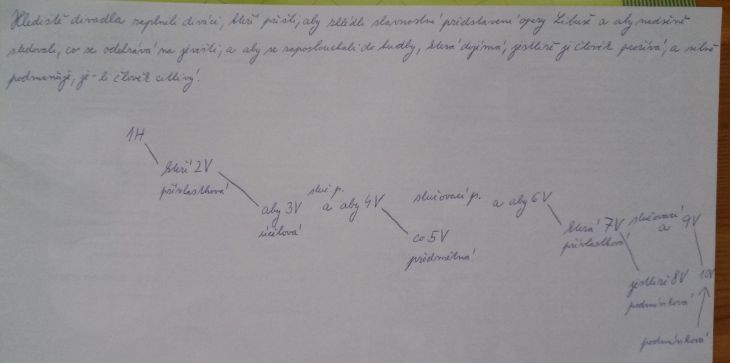 Hlediště divadla zaplnili diváci, kteří přišli, aby zhlédli slavnostní představení opery Libuše a aby nadšeně
sledovali, co se odehrává na jevišti, a aby se zaposlouchali do hudby, která dojímá, jestliže ji člověk prožívá, a silně
podmaňuje, je-li člověk citlivý.
1H
kteří 2V
přívlastková
aby 3V
účelová
sluč. p.
a aby 4V
co 5V
předmětná
slučovací p.
a aby 6V
která 7V
přívlastková
slučovací
a
9V
jestliže 8V
podmínková
10V
podmínková